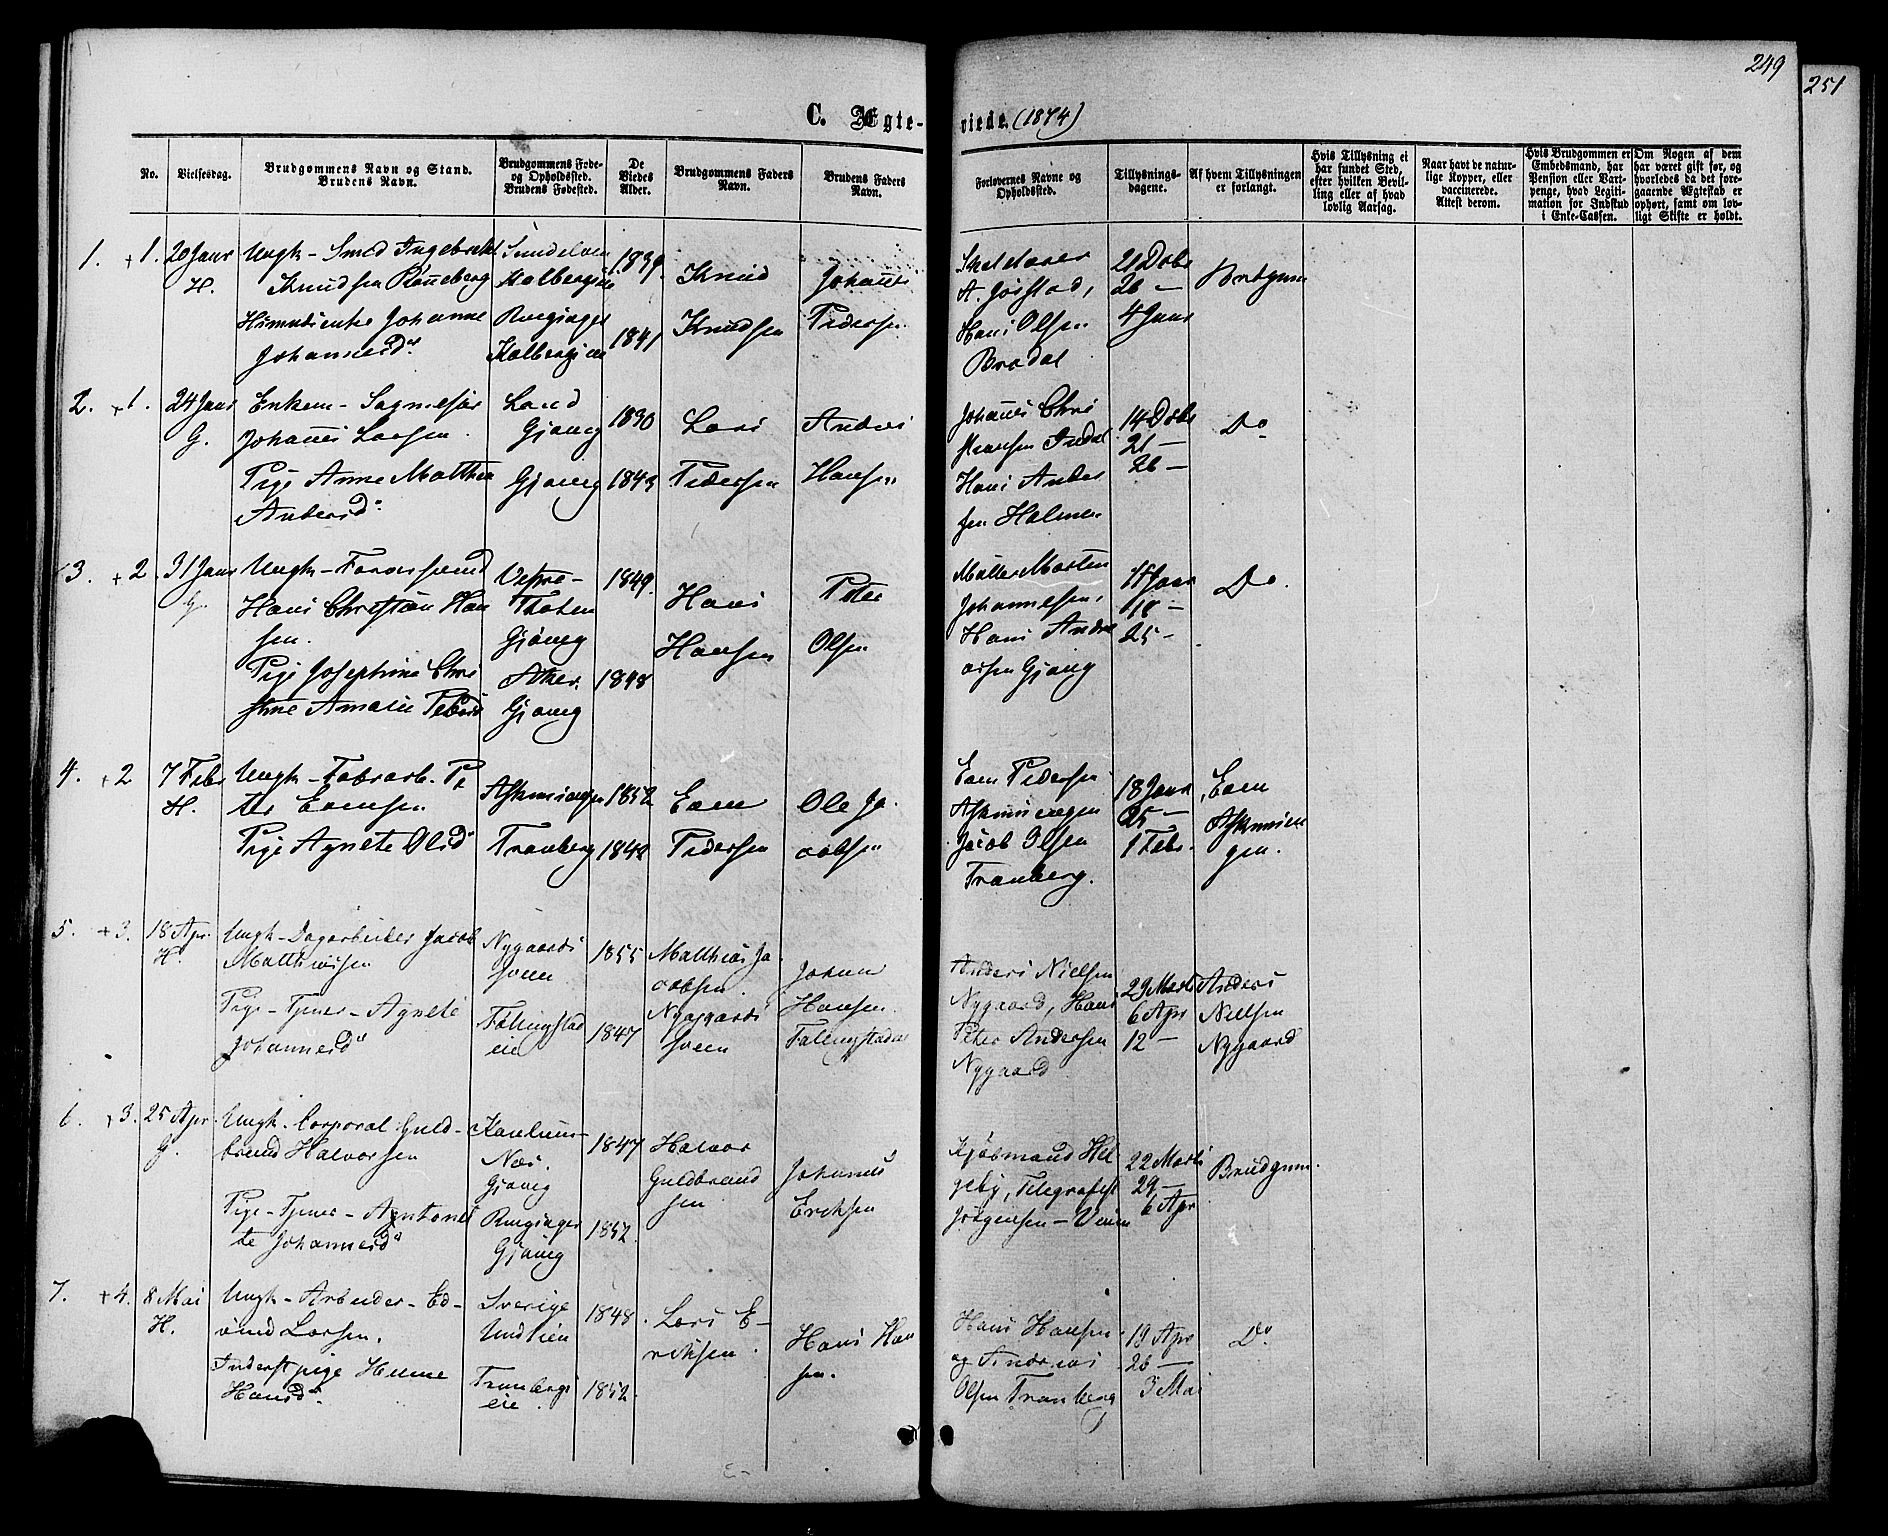 249
251
C. Ægte-
viede. (1874)
No.
Vielsesdag.
Brudgommens Navn og Stand.
Brudens Navn.
Brudgommens Føde-
og Opholdssted.
Brudens Fødested.
De
Viedes
Alder.
Brudgommens Faders
Navn.
Brudens Faders
Navn.
Forlovernes Navne og
Opholdssted.
Tillysnings-
dagene.
Af hvem Tillysningen
er forlangt.
Hvis Tillysning ei
har fundet Sted,
efter hvilken Bevil-
ling eller af hvad
lovlig Aarsag.
Naar havt de natur-
lige Kopper, eller
vaccinerede.
Attest derom.
Hvis Brudgommen er
Embedsmand, har
Pension eller Vart-
penge, hvad Legiti-
mation for Indskud
i Enke-Cassen.
Om Nogen af dem
har været gift før, og
hvorledes da det fore-
gaaende Ægteskab er
ophørt, samt om lov-
ligt Skifte er holdt.
1. + 1. 20 Janr
H.
Ungk - Smed Ingebrekt
Knudsen Rønneberg
Johanne
Johannesd.
Ringinger
1839.
1841
Knud
Knudsen
Johannes
Pedersen
A. Jøistad,
Hans Olsen
Bradal
21 Dcbr
26 -
4 Janr
Brudgum
2. + 1. 24 Janr
G.
Enkem - Sagmester
Johannes Larsen
Pige Anne Matthea
Andersd.
Land
Gjøvig
Gjøvig
1830
1843
Lars
Pedersen
Anders
Hansen
Johannes Chri
stiansen Indal
Hans Ander
sen Holmen
14 Dcbr
21 -
26 -
Do
3. + 2 31 Janr
G.
Ungk - Farversvend
Hans Christian Han
sen.
Pige Josephine Chri
stine Amalie Petersd
Vestre-
Thoten
Gjøvig
Aker.
Gjøvig
1849.
1848
Hans
Hansen
Peter
Olsen
Møller Morten
Johannesen,
Hans Andre
asen Gjøvig
11 Janr
18 -
25 -
Do.
4. + 2 7 Febr
H.
Ungk - Fabrarb. Pe
ter Evensen
Pige Agnete Olsd
Tranberg
1852
1842
Even
Pedersen
Ole Ja
cobsen
Even Pedersen
Jacob Olsen
Tranberg.
18 Janr
25 -
1 Febr.
Even
5. + 3. 18 Apr.
H.
Ungk - Dagarbeider Jacob
Matthiasen
Pige - Tjener - Agnete
Johannesd
Nygaards
sveen
eie
1855
1847
Matthias Ja
cobsen.
Nygaards
sveen
Johan
Hansen.
Anders Nielsen
Nygaard, Hans
Peter Andersen
Nygaard
29 Marts
6 Apr
12 -
Anders
Nielsen
Nygaard
6. + 3. 25 Apr
G.
Ungk. Corporal Guld-
brand Halvorsen
Pige - Tjener - Antonet
te Johannesd
Næs.
Gjøvig
Ringinger
Gjøvig
1847
1852.
Halvor
Guldbrand
sen
Johannes
Eriksen
Kjøbmand Hel
geby, Telegrafist
Jørgensen -
22 Marts
29 -
6 Apr
Brudgum.
7. + 4. 8 Mai
H.
Ungk - Arbeider - Ed-
vind Larsen.
Inderstpige Helene
Hansd.
Sverige
Tranbergs
eie.
1848.
1852.
Lars E-
riksen.
Hans Han
sen.
Hans Hansen
og Andreas
Olsen Tranberg
19 Apr
26 -
3 Mai
Do